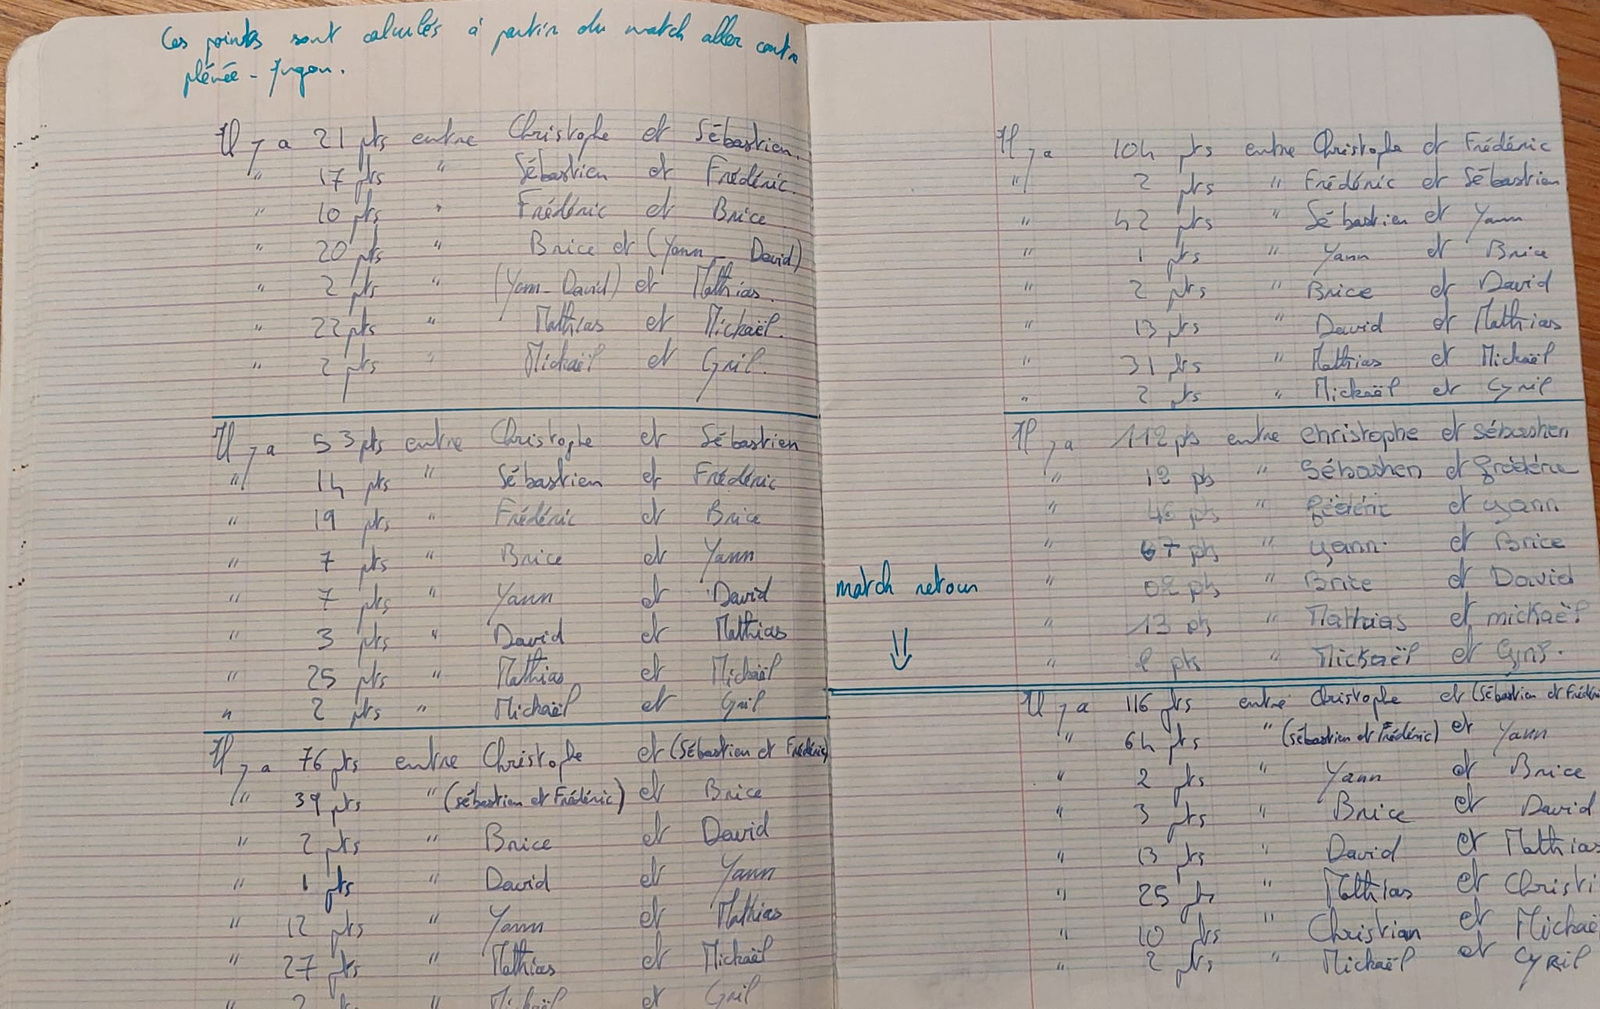 Ces points sont calculés à partir du match aller contre
plénée-Jugon.
Il y a 21 pts entre Christophe et Sébastien.
" 17 pts " Sébastien et Frédéric.
" 10 pts " Frédéric et Brice
" 20 pts " Brice et (Yann - David)
" 2 pts " (Yann-David) et Mathias.
" 22 pts " Mathias et Mickaël.
" 2 pts " Mickaël et Cyril.
Il y a 53 pts entre Christophe et Sébastien
" 14 pts " Sébastien et Frédéric
" 19 pts " Frédéric et Brice
" 7 pts " Brice et Yann
" 7 pts " Yann et David
" 3 pts " David et Mathias
" 25 pts " Mathias et Mickaël
" 2 pts " Mickaël et Cyril
Il y a 76 pts entre Christophe et (Sébastien et Frédéric)
" 39 pts " (Sébastien et Frédéric) et Brice
" 2 pts " Brice et David
" 1 pts " David et Yann
" 12 pts " Yann et Mathias
" 27 pts " Mathias et Mickaël
" 2 pts " Mickaël et Cyril
Il y a 104 pts entre Christophe et Frédéric
" 2 pts " Frédéric et Sébastien
" 42 pts " Sébastien et Yann
" 1 pts " Yann et Brice
" 2 pts " Brice et David
" 13 pts " David et Mathias
" 31 pts " Mathias et Mickaël
" 2 pts " Mickaël et Cyril
Il y a 112 pts entre Christophe et Sébastien
" 12 pts " Sébastien et Frédéric
" 46 pts " Frédéric et Yann
" pts " Yann et Brice
" 02 pts " Brice et David
" 13 pts " Mathias et mickaël
" 2 pts " Mickaël et Cyril.
match retour
Il y a 116 pts entre Christophe et (Sébastien et Frédéri
" 64 pts " (Sébastien et Frédéric) et Yann
" 2 pts " Yann et Brice
" 3 pts " Brice et David
" 13 pts " David et Mathias
" 25 pts " Mathias et Christi
" 10 pts " Christian et Mickaë
" 2 pts " Mickaël et Cyril